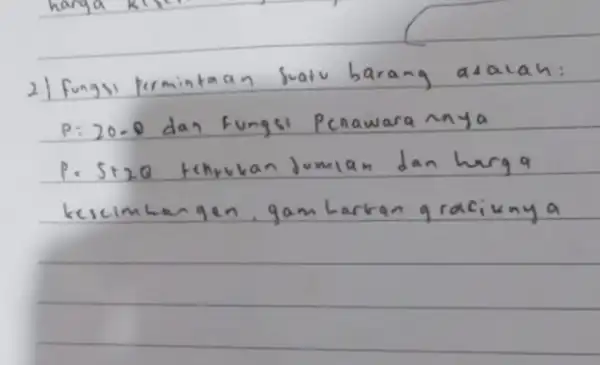 harga
2) Fungsi Permintaan Suatu barang adalah:
P: 20-Q dan Fungsi Penawarannya
P= 5+2Q tentukan Jumlah dan harga
keseimbangan. gambarkan graciknya